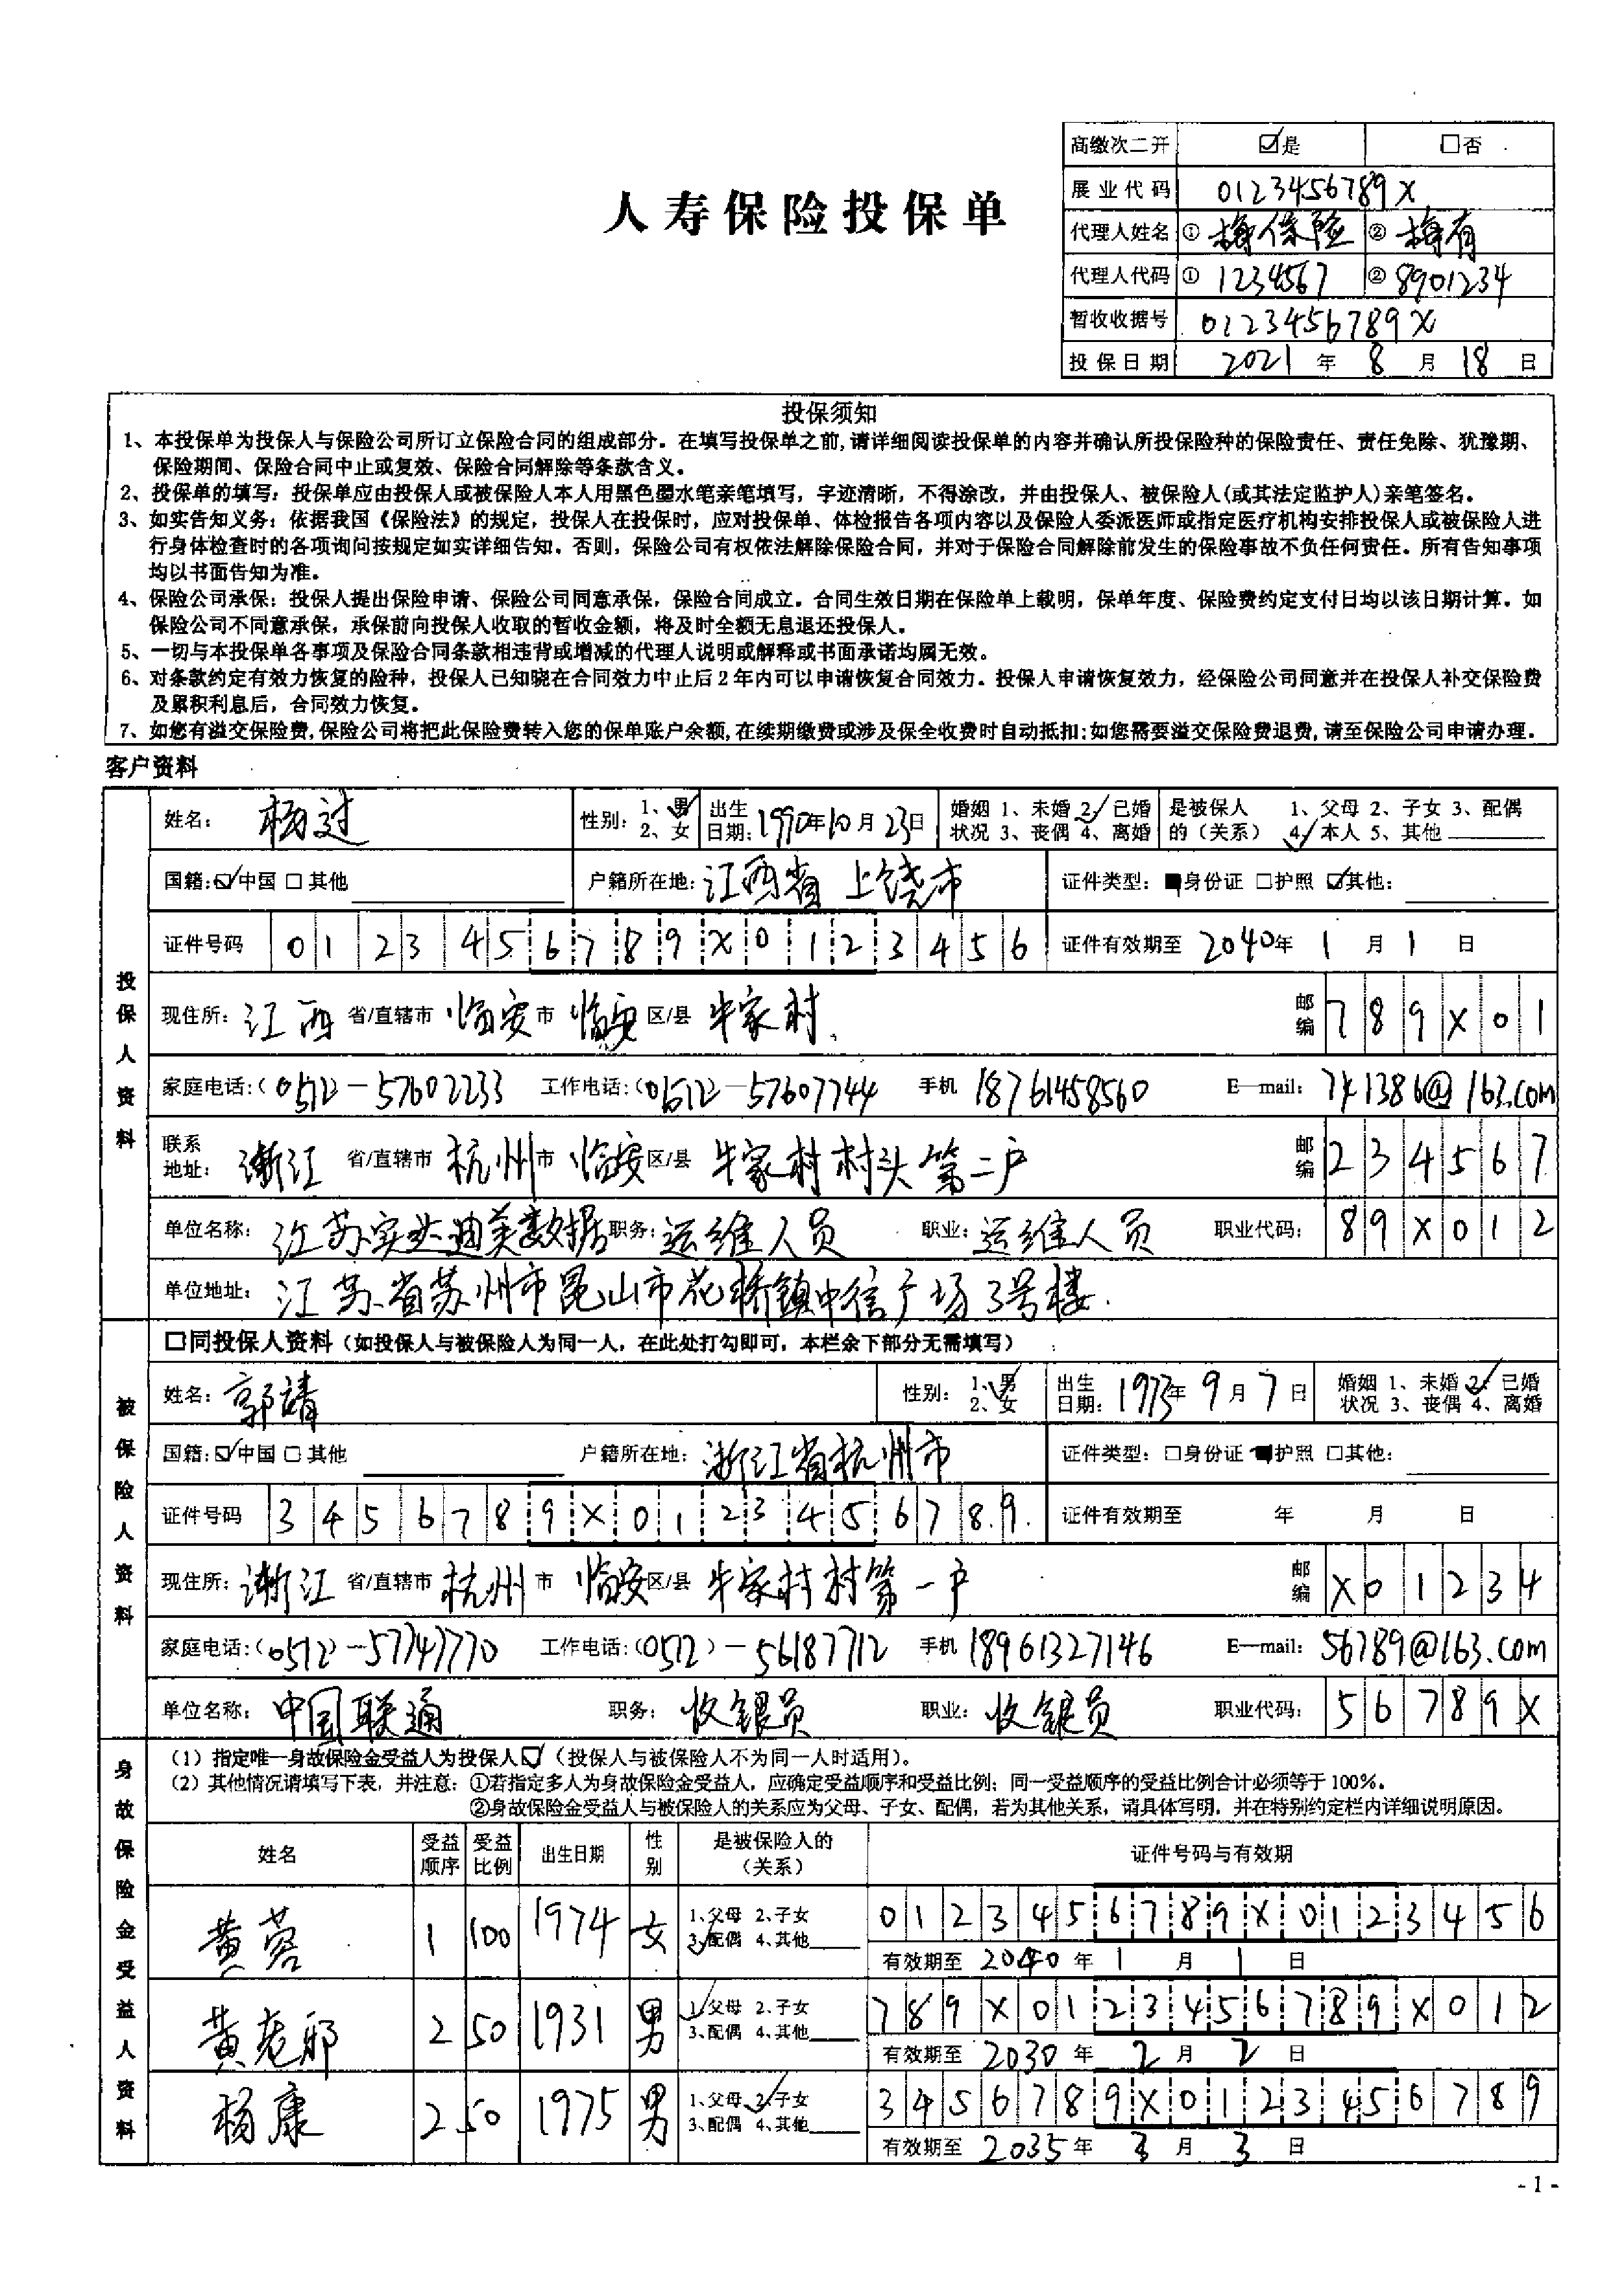 高缴次二开 ☑是 □否
人寿保险投保单
展业代码 0123456789X
代理人姓名 ① 梅保险 ② 梅有
代理人代码 ① 1234567 ② 8901234
暂收收据号 0123456789X
投保日期 2021 年 8 月 18 日
投保须知
1、本投保单为投保人与保险公司所订立保险合同的组成部分。在填写投保单之前,请详细阅读投保单的内容并确认所投保险种的保险责任、责任免除、犹豫期、
保险期间、保险合同中止或复效、保险合同解除等条款含义。
2、投保单的填写：投保单应由投保人或被保险人本人用黑色墨水笔亲笔填写，字迹清晰，不得涂改，并由投保人、被保险人(或其法定监护人)亲笔签名。
3、如实告知义务：依据我国《保险法》的规定，投保人在投保时，应对投保单、体检报告各项内容以及保险人委派医师或指定医疗机构安排投保人或被保险人进
行身体检查时的各项询问按规定如实详细告知。否则，保险公司有权依法解除保险合同，并对于保险合同解除前发生的保险事故不负任何责任。所有告知事项
均以书面告知为准。
4、保险公司承保：投保人提出保险申请、保险公司同意承保，保险合同成立。合同生效日期在保险单上载明，保单年度、保险费约定支付日均以该日期计算。如
保险公司不同意承保，承保前向投保人收取的暂收金额，将及时全额无息退还投保人。
5、一切与本投保单各事项及保险合同条款相违背或增减的代理人说明或解释或书面承诺均属无效。
6、对条款约定有效力恢复的险种，投保人已知晓在合同效力中止后2年内可以申请恢复合同效力。投保人申请恢复效力，经保险公司同意并在投保人补交保险费
及累积利息后，合同效力恢复。
7、如您有溢交保险费,保险公司将把此保险费转入您的保单账户余额,在续期缴费或涉及保全收费时自动抵扣;如您需要溢交保险费退费,请至保险公司申请办理。
客户资料
投保人资料
姓名： 杨过 性别： 1、男 2、女 出生日期： 1990年10月23日 婚姻状况 1、未婚 2、已婚 3、丧偶 4、离婚 是被保人的（关系） 1、父母 2、子女 3、配偶 4、本人 5、其他
国籍:☑中国 □其他 户籍所在地: 江西省上饶市 证件类型: ■身份证 □护照 ☑其他:
证件号码 0123456789X0123456 证件有效期至 2040年 1 月 1 日
现住所: 江西 省/直辖市 临安 市 临安 区/县 牛家村 邮编 789X01
家庭电话:(0512-57602233 工作电话:(0512-57607744 手机 18761458560 E-mail: 741386@163.com
联系地址: 浙江 省/直辖市 杭州 市 临安 区/县 牛家村村头第二户 邮编 234567
单位名称: 江苏实达迪美数据 职务: 运维人员 职业: 运维人员 职业代码: 89X012
单位地址: 江苏省苏州市昆山市花桥镇中信广场3号楼.
被保险人资料
□同投保人资料（如投保人与被保险人为同一人，在此处打勾即可，本栏余下部分无需填写）
姓名: 郭靖 性别: 1、男 2、女 出生日期: 1973年 9 月 7 日 婚姻状况 1、未婚 2、已婚 3、丧偶 4、离婚
国籍:☑中国 □其他 户籍所在地: 浙江省杭州市 证件类型: □身份证 ■护照 □其他:
证件号码 3456789X0123456789 证件有效期至 年 月 日
现住所: 浙江 省/直辖市 杭州 市 临安 区/县 牛家村村第一户 邮编 X01234
家庭电话:(0512)-57747770 工作电话:(0512)-56187712 手机 18961327146 E-mail: 56789@163.com
单位名称: 中国联通 职务: 收银员 职业: 收银员 职业代码: 56789X
身故保险金受益人资料
（1）指定唯一身故保险金受益人为投保人☑（投保人与被保险人不为同一人时适用）。
（2）其他情况请填写下表，并注意：①若指定多人为身故保险金受益人，应确定受益顺序和受益比例；同一受益顺序的受益比例合计必须等于100%。
②身故保险金受益人与被保险人的关系应为父母、子女、配偶，若为其他关系，请具体写明，并在特别约定栏内详细说明原因。
姓名 受益顺序 受益比例 出生日期 性别 是被保险人的（关系） 证件号码与有效期
黄蓉 1 100 1974 女 1、父母 2、子女 3、配偶 4、其他 0123456789X0123456
有效期至 2040 年 1 月 1 日
黄老邪 2 50 1931 男 1、父母 2、子女 3、配偶 4、其他 789X0123456789X012
有效期至 2030 年 2 月 2 日
杨康 2 50 1975 男 1、父母 2、子女 3、配偶 4、其他 3456789X0123456789
有效期至 2035 年 3 月 3 日
- 1 -